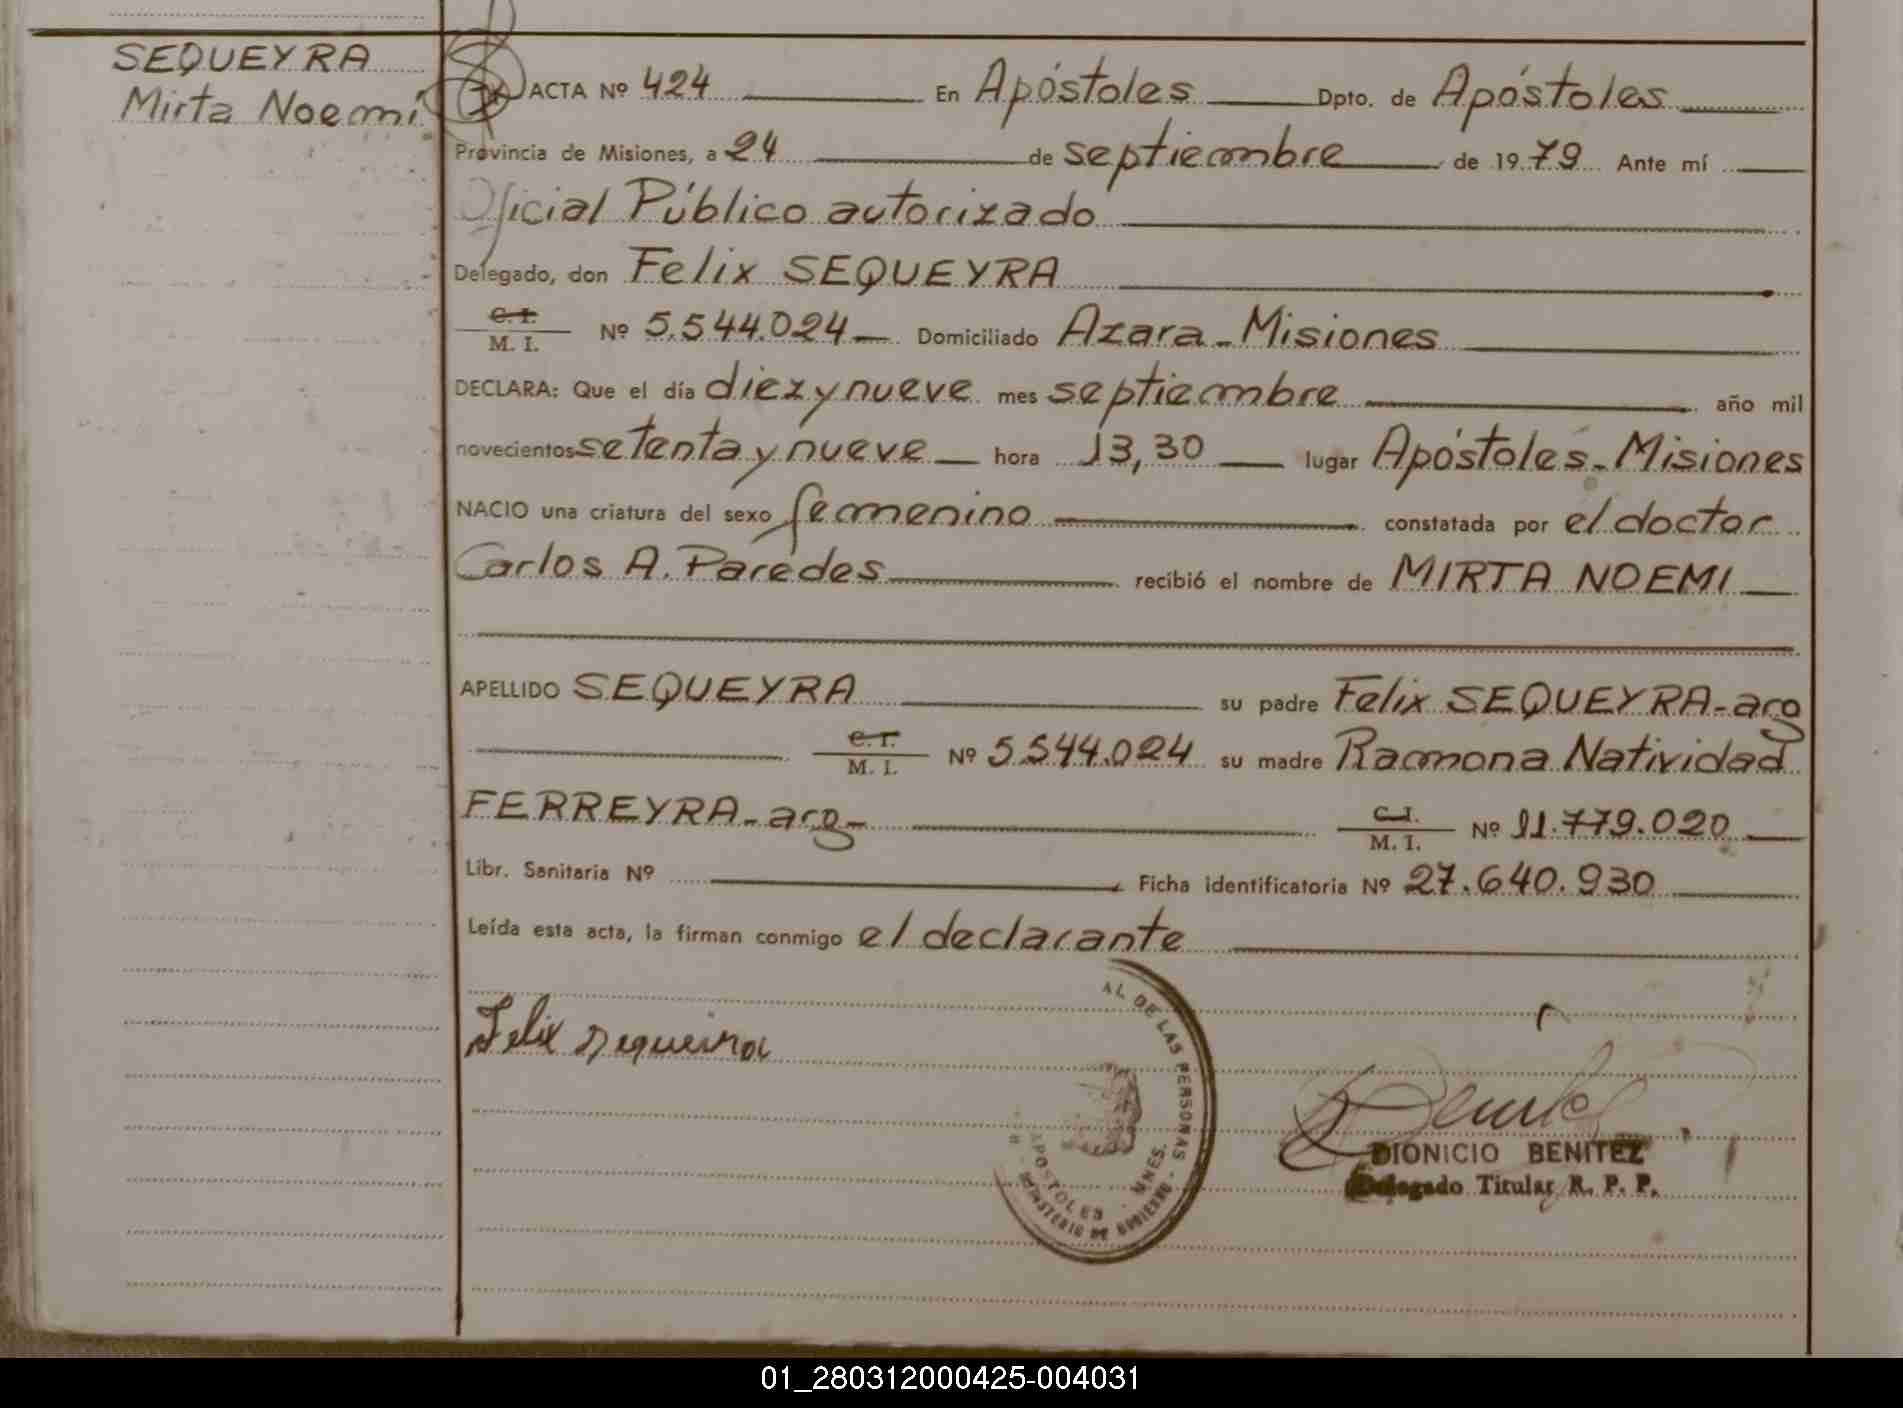 SEQUEYRA
Mirta Noemí
ACTA Nº 424 En Apóstoles Dpto. de Apóstoles
Provincia de Misiones, a 24 de septiembre de 1979 Ante mí
Oficial Público autorizado
Delegado, don Felix SEQUEYRA
C. I.
M. I. Nº 5.544.024 Domiciliado Azara - Misiones
DECLARA: Que el día diez y nueve mes septiembre año mil
novecientos setenta y nueve hora 13,30 lugar Apóstoles - Misiones
NACIO una criatura del sexo femenino constatada por el doctor
Carlos A. Paredes recibió el nombre de MIRTA NOEMI
APELLIDO SEQUEYRA su padre Felix SEQUEYRA - arg
C. I.
M. I. Nº 5.544.024 su madre Ramona Natividad
FERREYRA - arg - C. I.
M. I. Nº 11.779.020
Libr. Sanitaria Nº Ficha identificatoria Nº 27.640.930
Leída esta acta, la firman conmigo el declarante
Felix Sequeira
AL DE LAS PERSONAS - MINISTERIO DE GOBIERNO
APOSTOLES - MNES.
DIONICIO BENITEZ
Delegado Titular R. P. P.
01_280312000425-004031